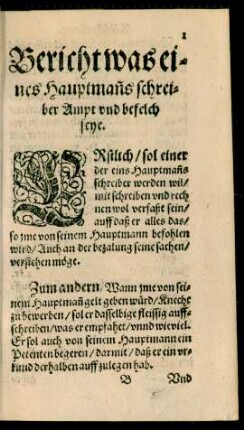 1
Bericht was ei-
nes Hauptmañs schrei-
ber Ampt vnd befelch
seye.
ERstlich / sol einer
der eins Hauptmañs
schreiber werden wil /
mit schreiben vnd rech
nen wol verfaßt sein /
auff daß er alles das /
so jme von seinem Hauptmann befohlen
wird / Auch an der bezalung seine sachen /
verstehen möge.
Zum andern / Wann jme von sei-
nem Hauptmañ gelt geben würd / Knecht
zu bewerben / sol er dasselbige fleissig auff-
schreiben / was er empfahet / vnnd wieviel.
Er sol auch von seinem Hauptmann ein
Petenten begeren / darmit / daß er ein vr-
kund derhalben auffzulegen hab.
B Vnd